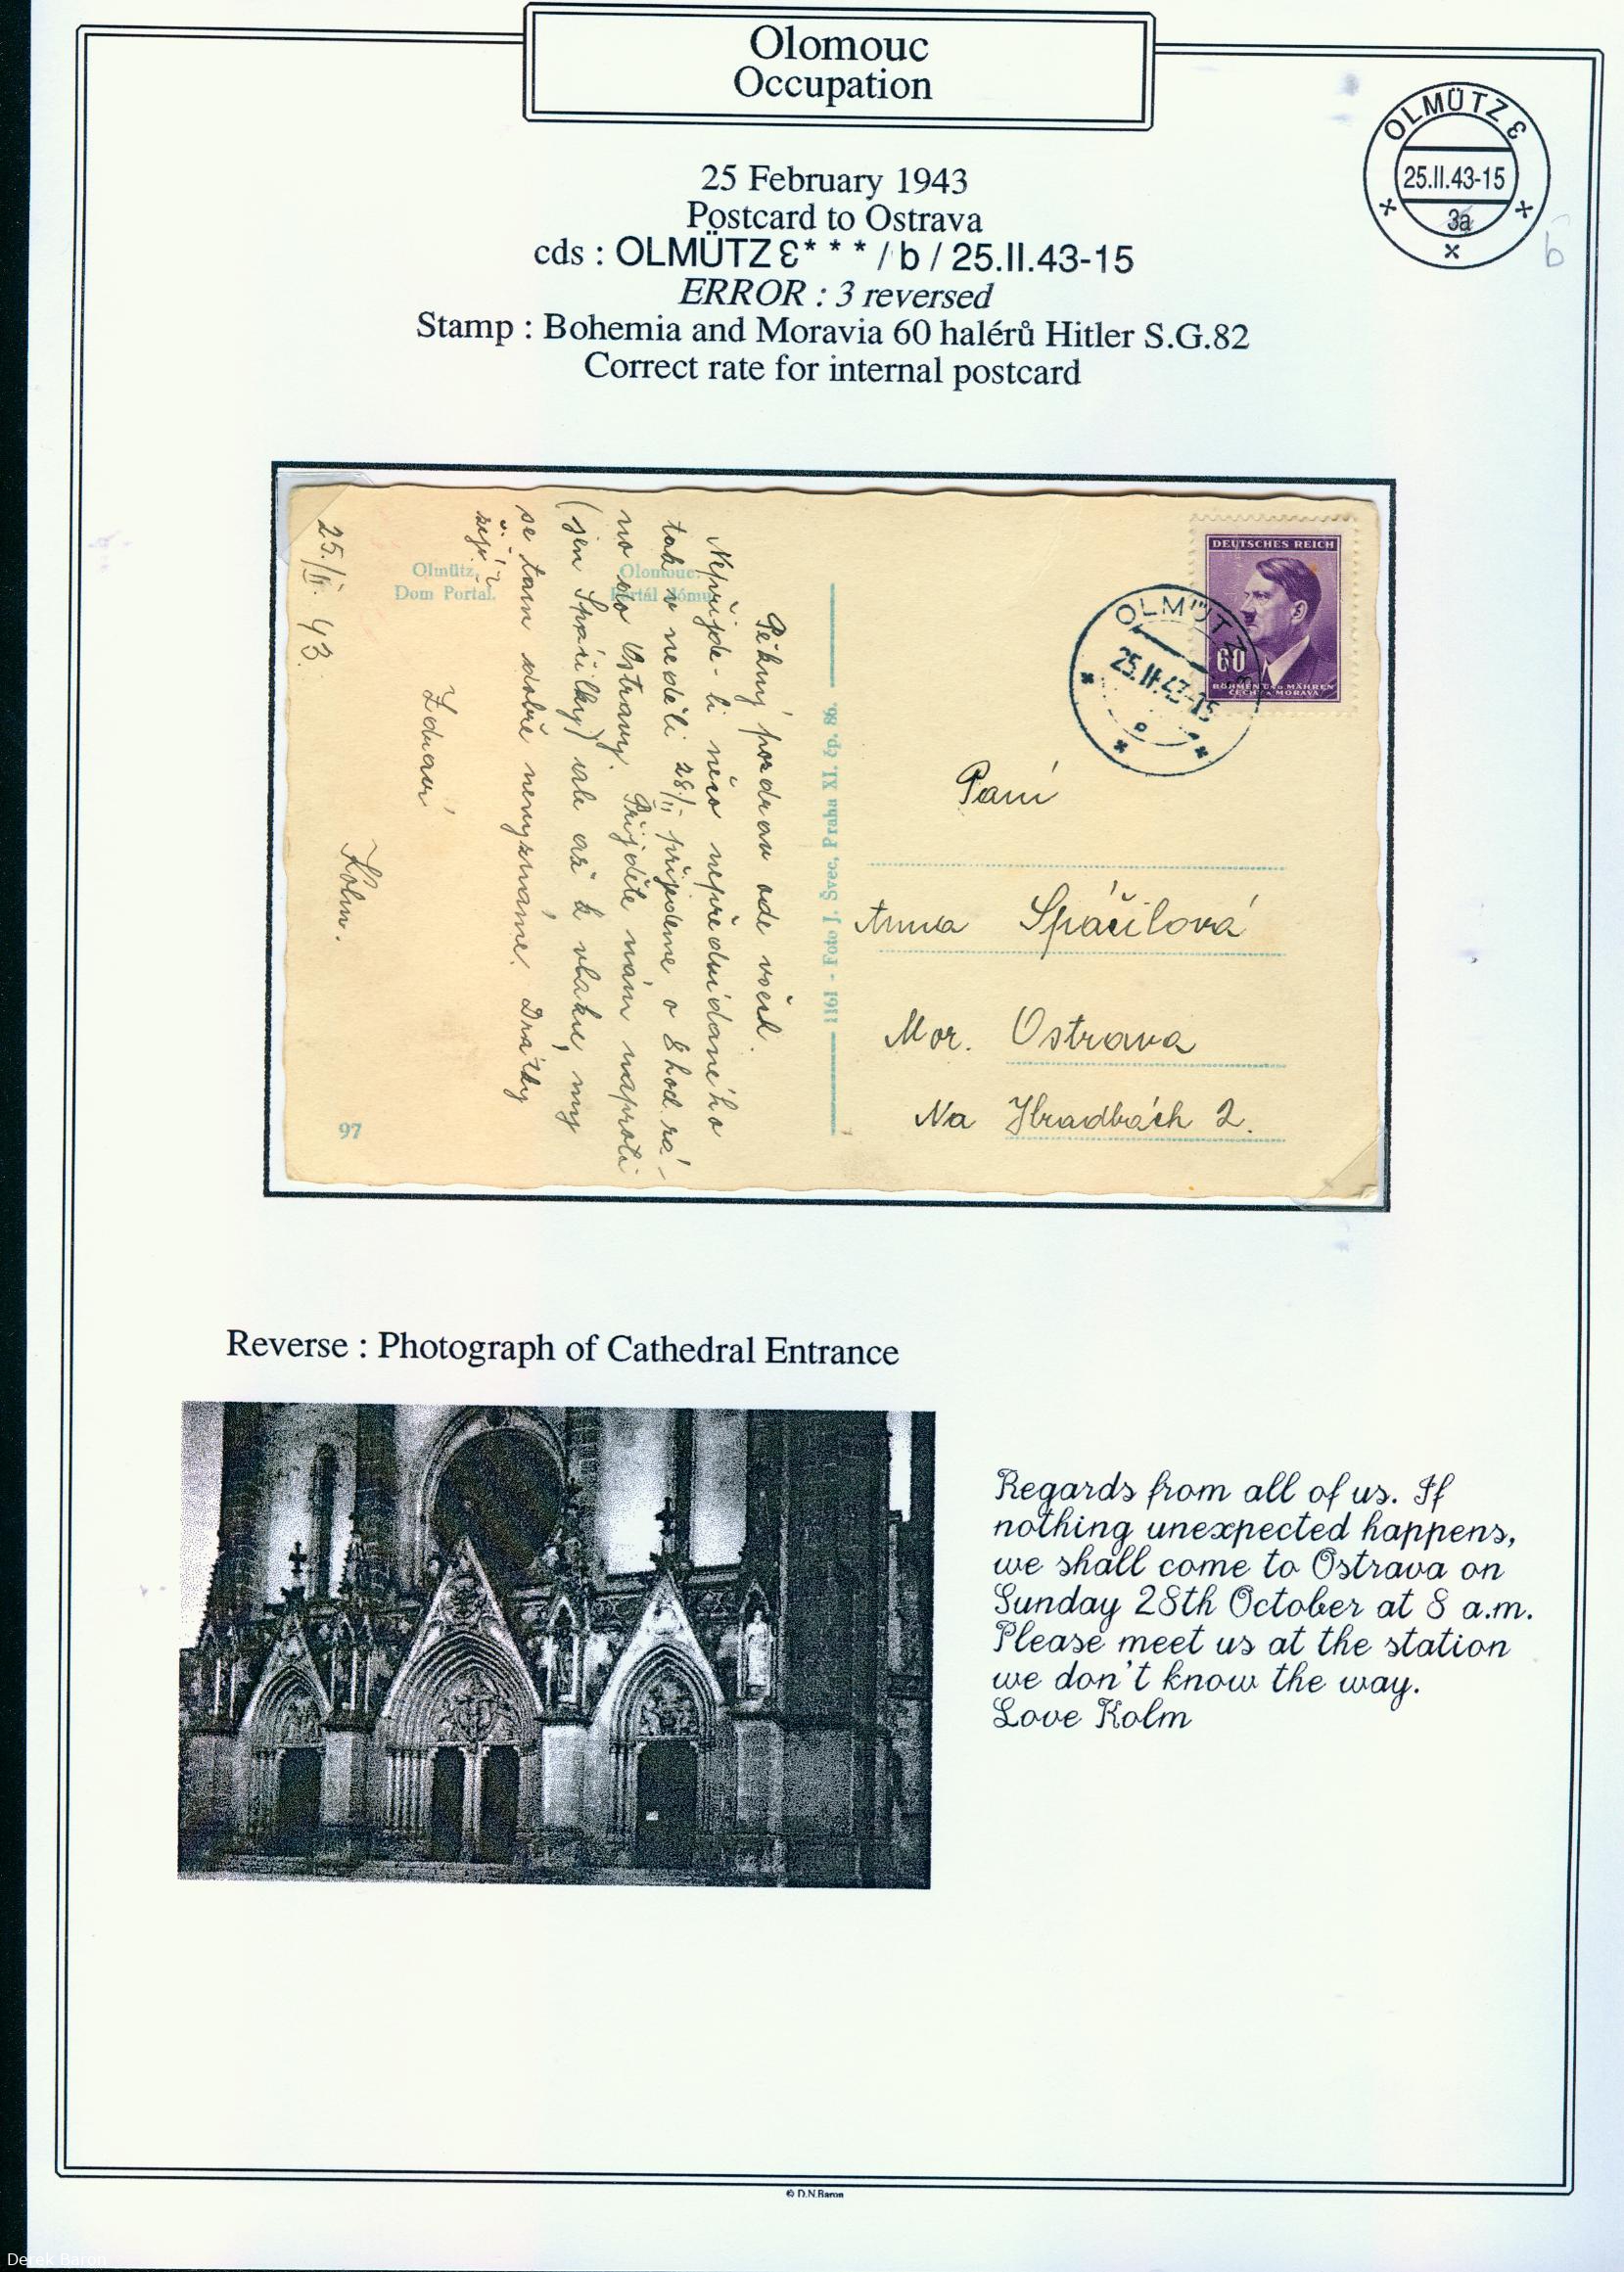 Olomouc
Occupation
OLMÜTZ Ɛ
25.II.43-15
3a
b
25 February 1943
Postcard to Ostrava
cds : OLMÜTZ Ɛ* * * / b / 25.II.43-15
ERROR : 3 reversed
Stamp : Bohemia and Moravia 60 halérů Hitler S.G.82
Correct rate for internal postcard
DEUTSCHES REICH
60
BÖHMEN UND MÄHREN
ČECHY A MORAVA
OLMÜTZ
25.II.43-15
Olmütz,
Dom Portal.
Olomouc.
Portál dómu
Pěkný pozdrav ode všech.
Nepřijde-li něco nepředvídaného
tak v neděli 28/II přijedeme o 8 hod. rá-
no do Ostravy. Přijděte nám naproti
(jen Spáčilky) ale až k vlaku, my
se tam dobře nevyznáme. Drážky
Zdraví
Kolm.
25./II. 43.
97
1161 - Foto J. Švec, Praha XI. čp. 86.
Paní
Anna Spáčilová
Mor. Ostrava
Na Hradbách 2.
Reverse : Photograph of Cathedral Entrance
Regards from all of us. If
nothing unexpected happens,
we shall come to Ostrava on
Sunday 28th October at 8 a.m.
Please meet us at the station
we don't know the way.
Love Kolm
© D.N.Baron
Derek Baron